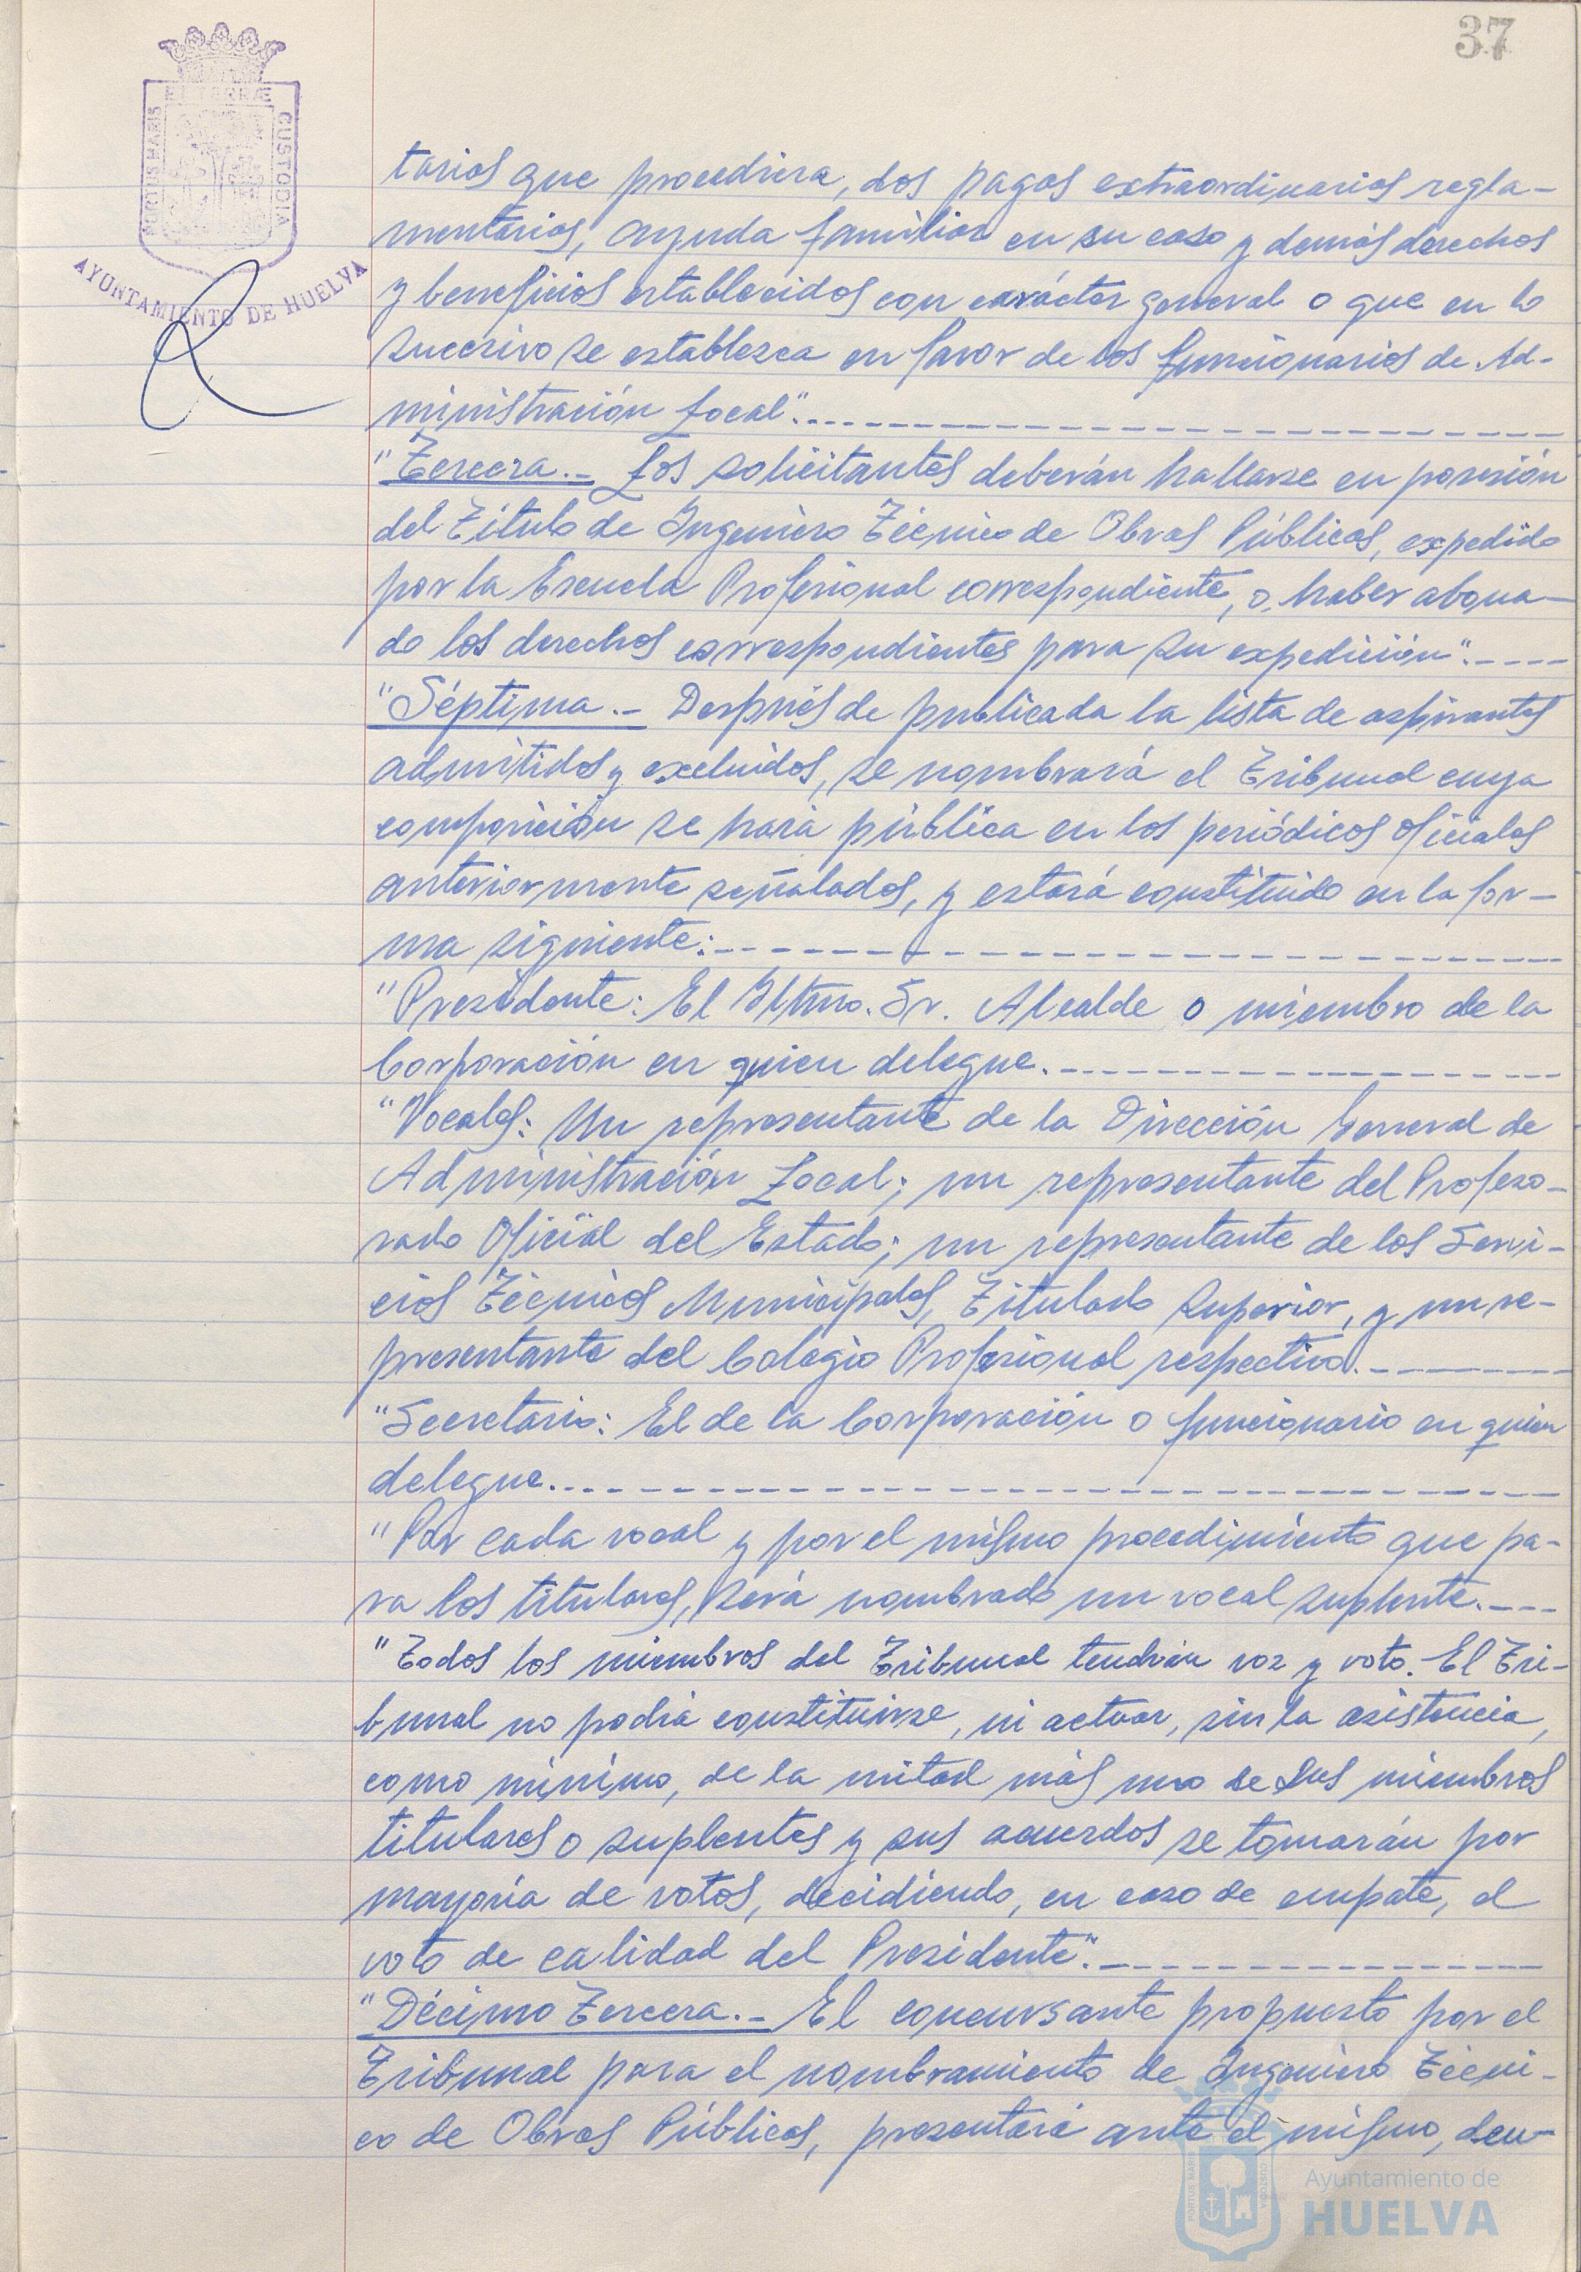 37
PORTUS MARIS
ET TERRÆ
CUSTODIA
AYUNTAMIENTO DE HUELVA
tarios que procediera, dos pagas extraordinarias regla-
mentarias, ayuda familiar en su caso y demás derechos
y beneficios establecidos con carácter general o que en lo
sucesivo se establezca en favor de los funcionarios de Ad-
ministración Local".
"Tercera.- Los solicitantes deberán hallarse en posesión
del Título de Ingeniero Técnico de Obras Públicas, expedido
por la Escuela Profesional correspondiente, o haber abona-
do los derechos correspondientes para su expedición".
"Séptima.- Después de publicada la lista de aspirantes
admitidos y excluidos, se nombrará el Tribunal cuya
composición se hará pública en los periódicos oficiales
anteriormente señalados, y estará constituido en la for-
ma siguiente:
"Presidente: El Iltmo. Sr. Alcalde o miembro de la
Corporación en quien delegue.
"Vocales: Un representante de la Dirección General de
Administración Local; un representante del Profeso-
rado Oficial del Estado; un representante de los Servi-
cios Técnicos Municipales, Titulado Superior, y un re-
presentante del Colegio Profesional respectivo.
"Secretario: El de la Corporación o funcionario en quien
delegue.
"Por cada vocal y por el mismo procedimiento que pa-
ra los titulares, será nombrado un vocal suplente.
"Todos los miembros del Tribunal tendrán voz y voto. El Tri-
bunal no podrá constituirse, ni actuar, sin la asistencia,
como mínimo, de la mitad más uno de sus miembros
titulares o suplentes y sus acuerdos se tomarán por
mayoría de votos, decidiendo, en caso de empate, el
voto de calidad del Presidente".
"Décimo Tercera.- El concursante propuesto por el
Tribunal para el nombramiento de Ingeniero Técni-
co de Obras Públicas, presentará ante el mismo, den-
PORTUS MARIS
CUSTODIA
Ayuntamiento de
HUELVA